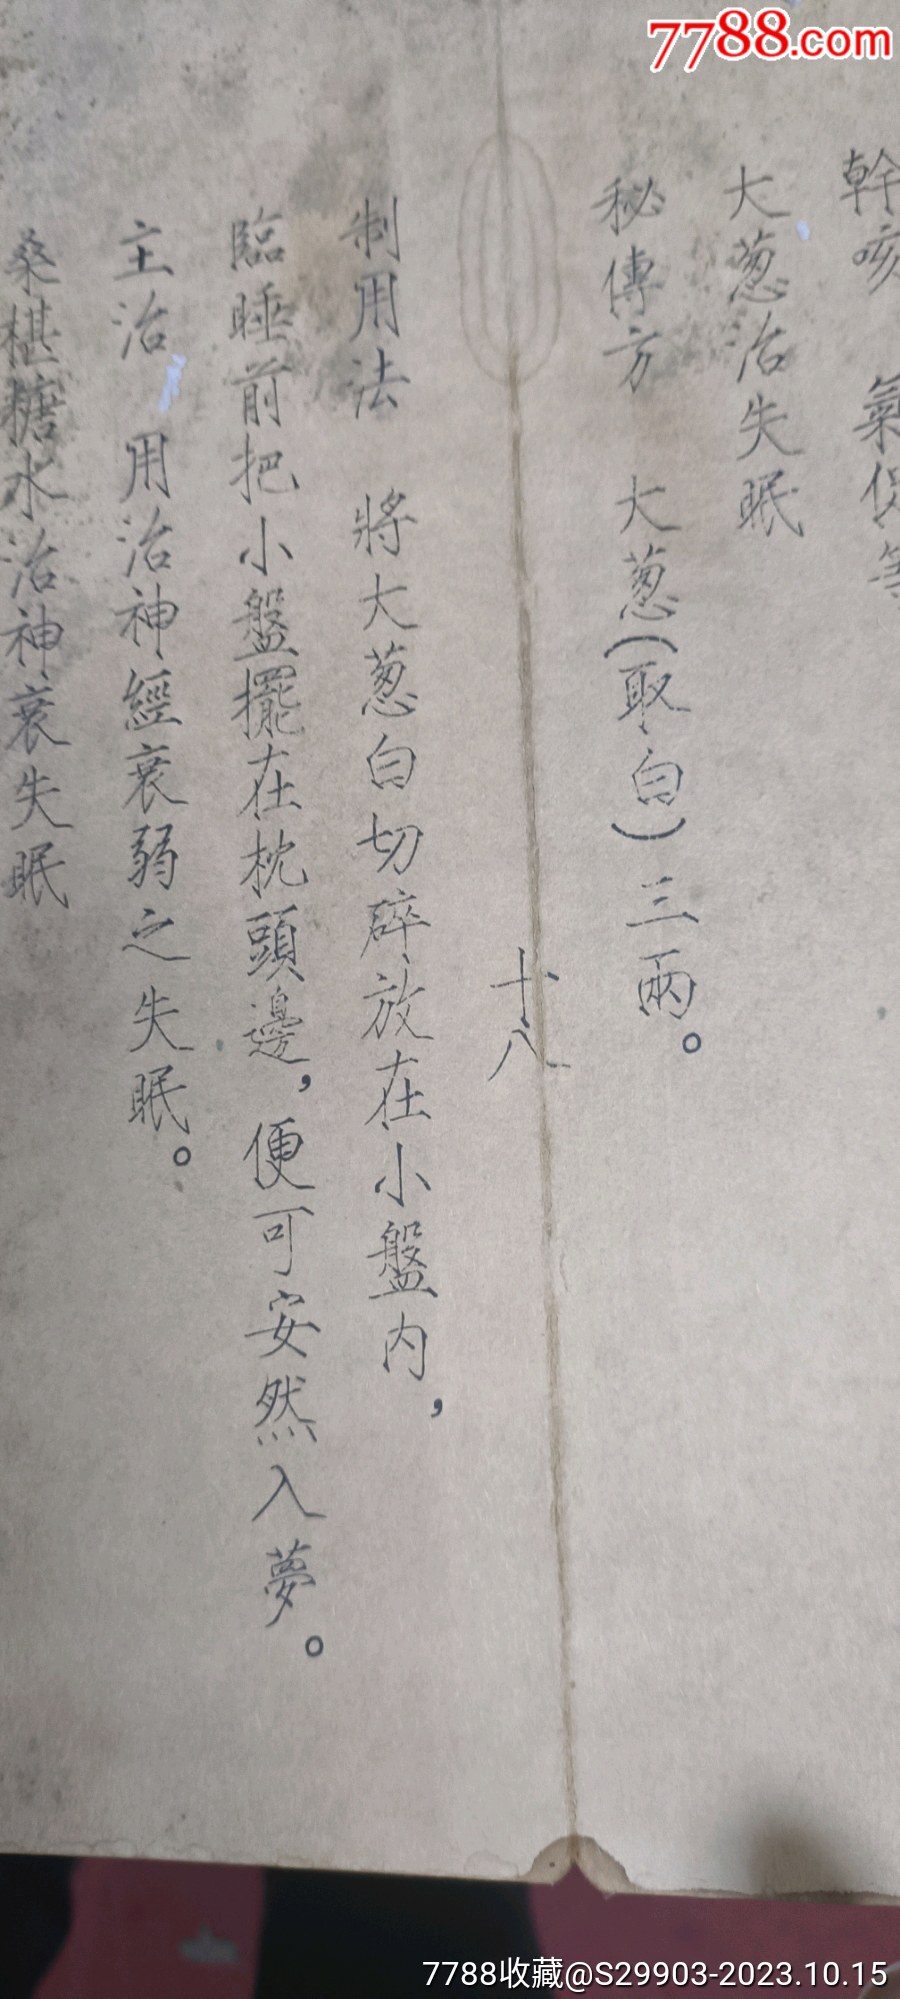 7788.com
幹咳 氣促等
大葱治失眠
秘傳方 大葱(取白)三兩。
十八
制用法 將大葱白切碎放在小盤内,
臨睡前把小盤擺在枕頭邊,便可安然入夢。
主治 用治神經衰弱之失眠。
桑椹糖水治神衰失眠
7788收藏@S29903-2023.10.15